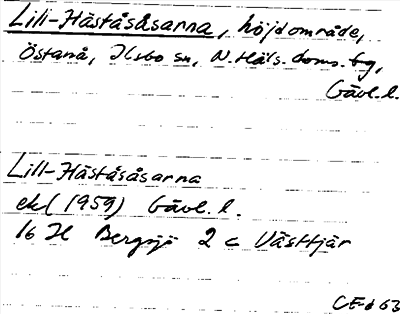 Lill-Håståsåsarna, höjdområde,
Östanå, Ilsbo sn, N. Häls. doms. bg,
Gävl. l.
Lill-Håståsåsarna
ek (1959) Gävl. l.
16 H Bergsjö 2 c Västtjär